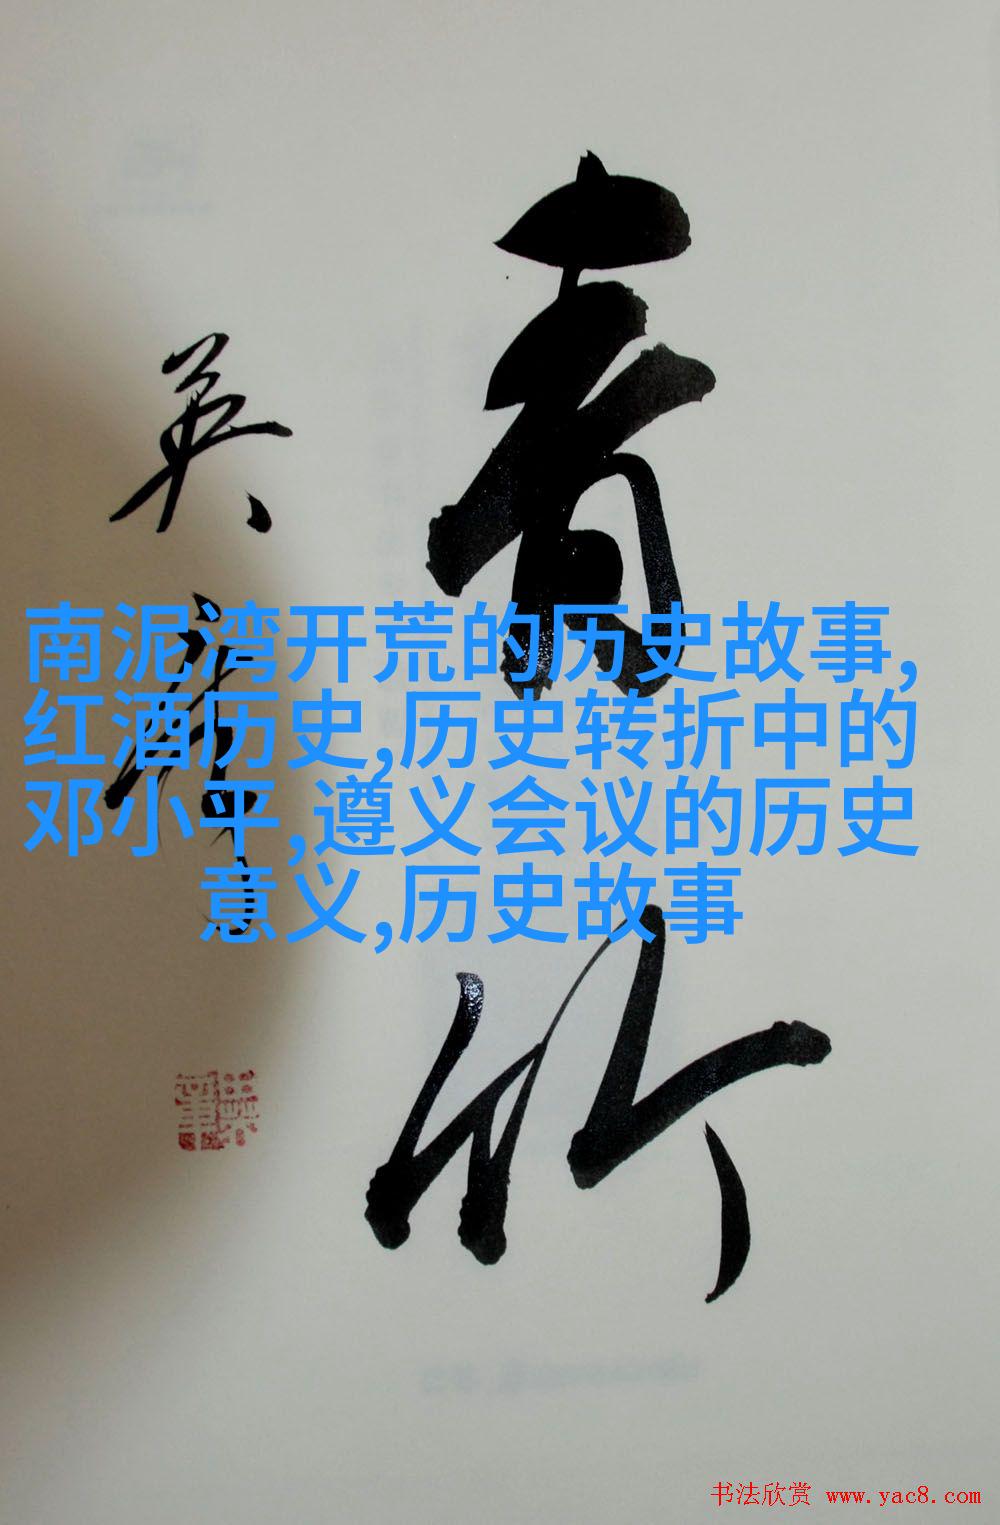 青竹
英
南泥湾开荒的历史故事,
红酒历史,历史转折中的
邓小平,遵义会议的历史
意义,历史故事
书法欣赏 www.yac8.com